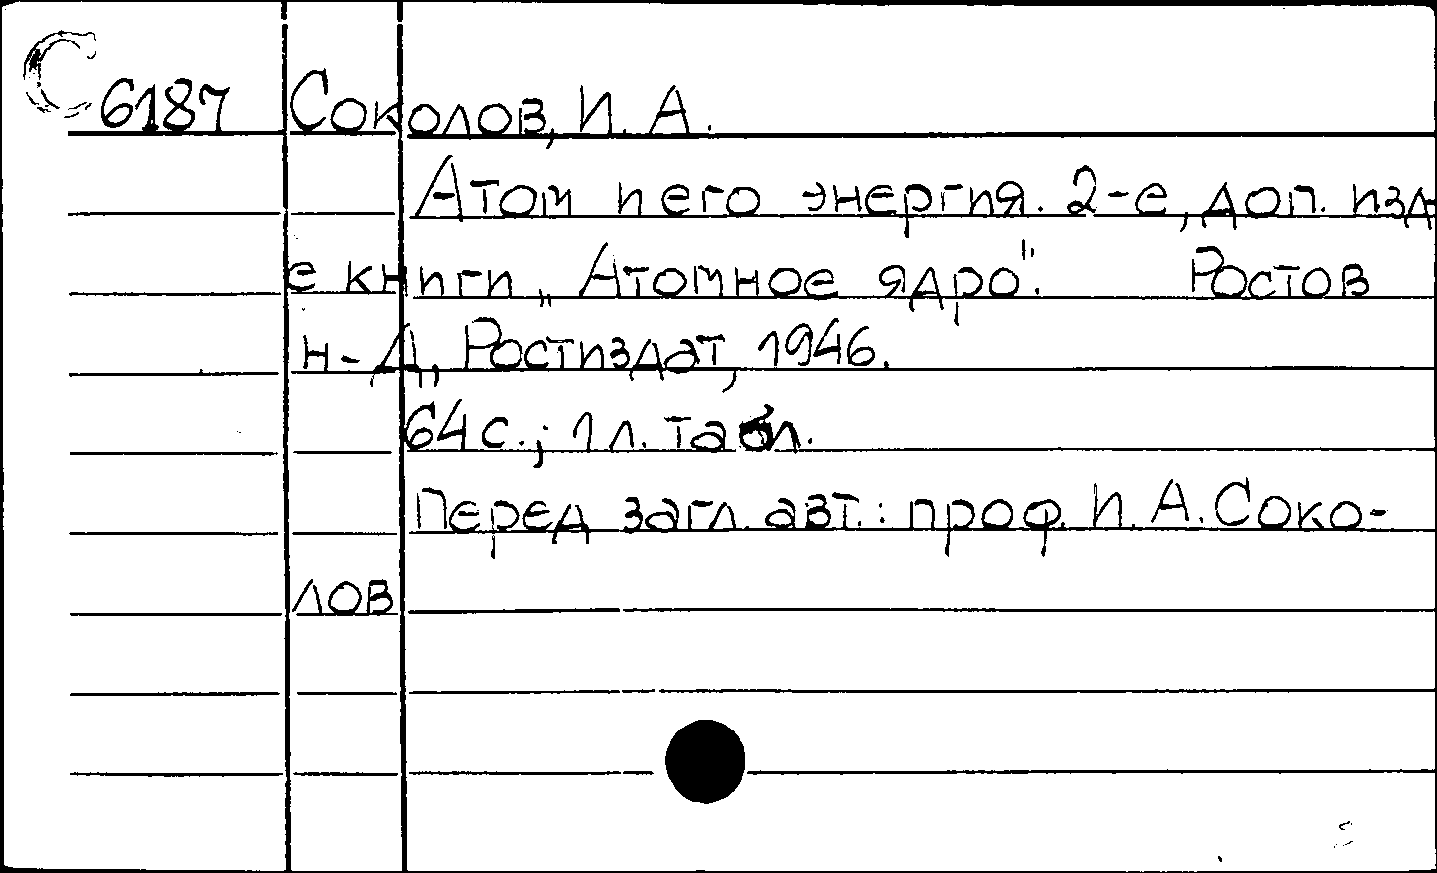 С 6187 Соколов, И. А.
Атом и его энергия. 2-е, доп. изд-
е книги „Атомное ядро". Ростов
н-Д., Ростиздат, 1946.
64 с.; 1 л. табл.
Перед загл. авт.: проф. И. А. Соко-
лов